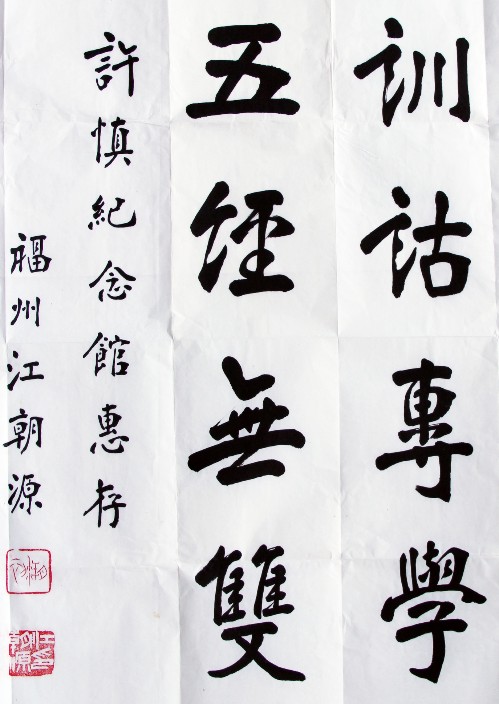 訓詁專學
五經無雙
許慎紀念館惠存
福州江朝源